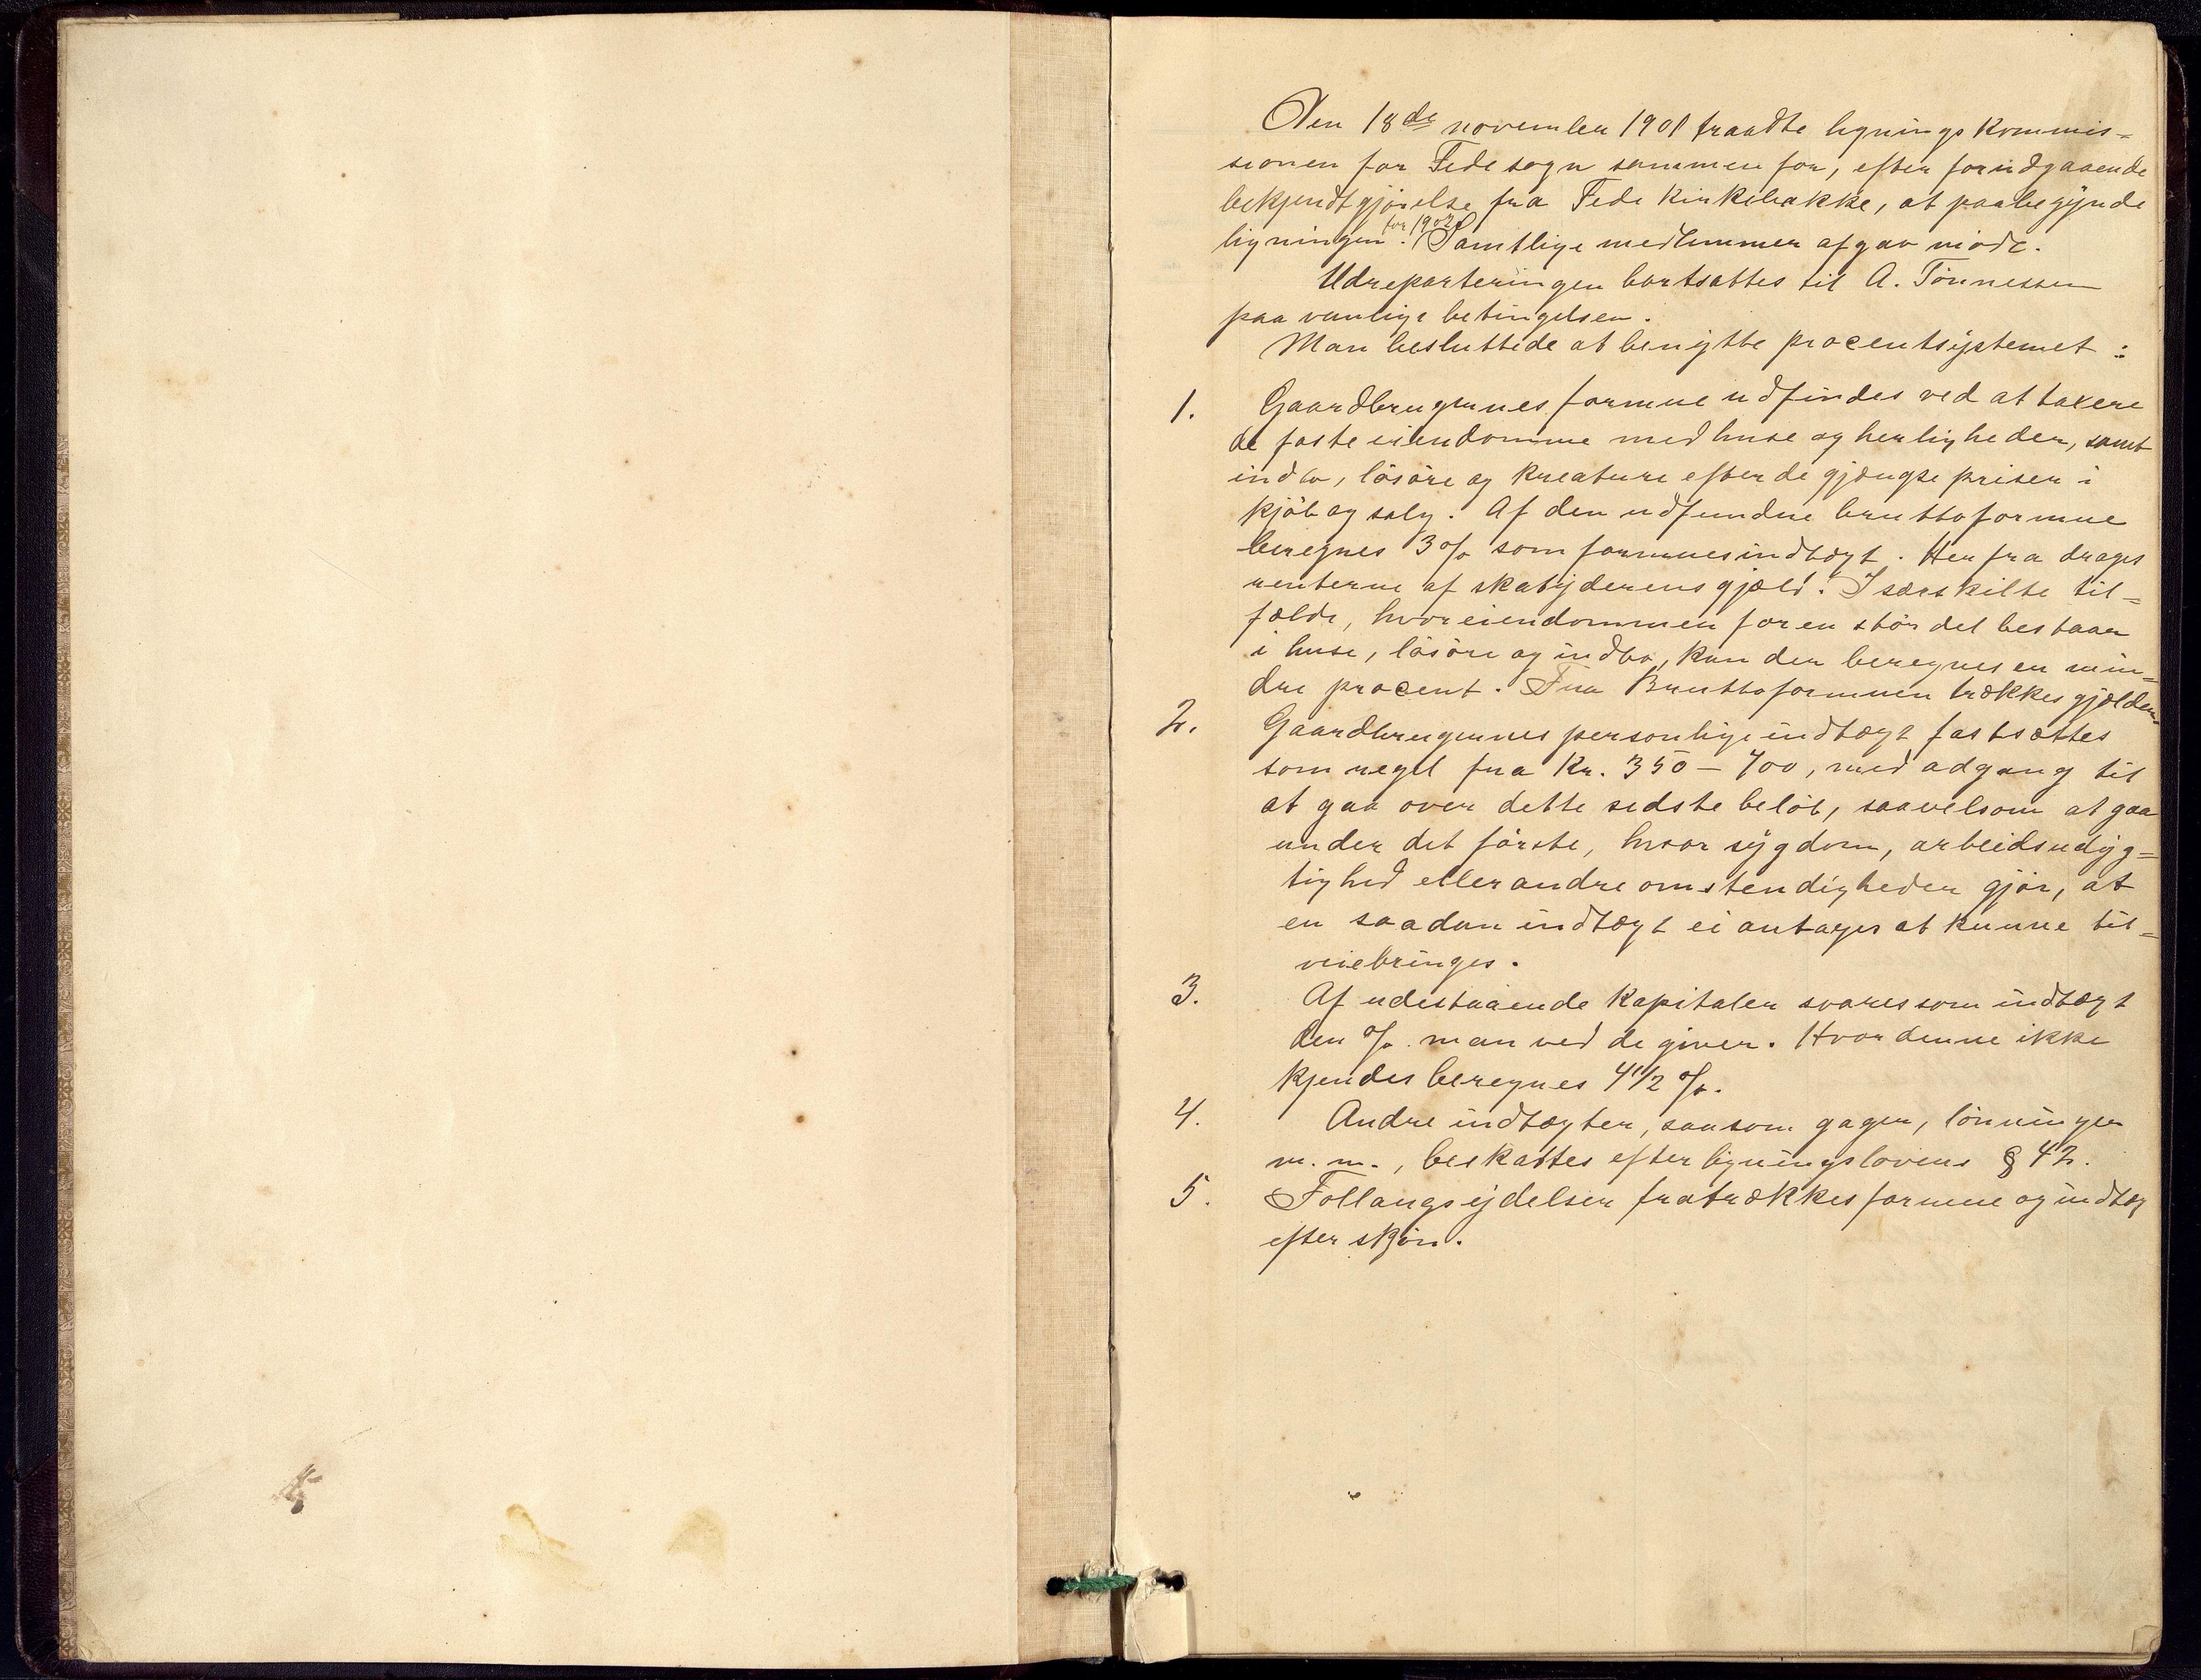 Den 18de november 1901 traadte ligningskommis=
sionen for Fede sogn sammen for, efter forudgaaende
bekjendtgjørelse fra Fede Kirkebakke, at paabegynde
ligningen for 1902. Samtlige medlemmer afgav møde.
Udreparteringen bortsattes til A. Tönnessen
paa vanlige betingelser.
Man besluttede at benytte procentsystemet:
1. Gaardbrugernes formue udfindes ved at taxere
de faste eiendomme med huse og herligheder, samt
indbo, lösöre og kreature efter de gjængse priser i
kjöb og salg. Af den udfundne bruttoformue
beregnes 3 % som formuesindtægt. Herfra drages
renterne af skatyderens gjæld. I særskilte til=
fælde, hvor eiendommen for en stör del bestaar
i huse, lösöre og indbo, kan der beregnes en min=
dre procent. Fra Bruttoformuen trækkes gjælden.
2. Gaardbrugernes personlige indtægt fastsættes
som regel fra Kr. 350 — 700, med adgang til
at gaa over dette sidste belöb, saavelsom at gaa
under det förste, hvor sygdom, arbeidsudyg=
tighed eller andre omstendigheder gjör, at
en saadan indtægt ei antages at kunne til=
veiebringes.
3. Af udestaaende Kapitaler svares som indtægt
den % man ved de giver. Hvor denne ikke
kjendes beregnes 4 1/2 %.
4. Andre indtægter, saasom gager, lönninger
m. m., beskattes efter ligningslovens § 42.
5. Follaugsydelser fratrækkes formue og indtæg
efter skjön.